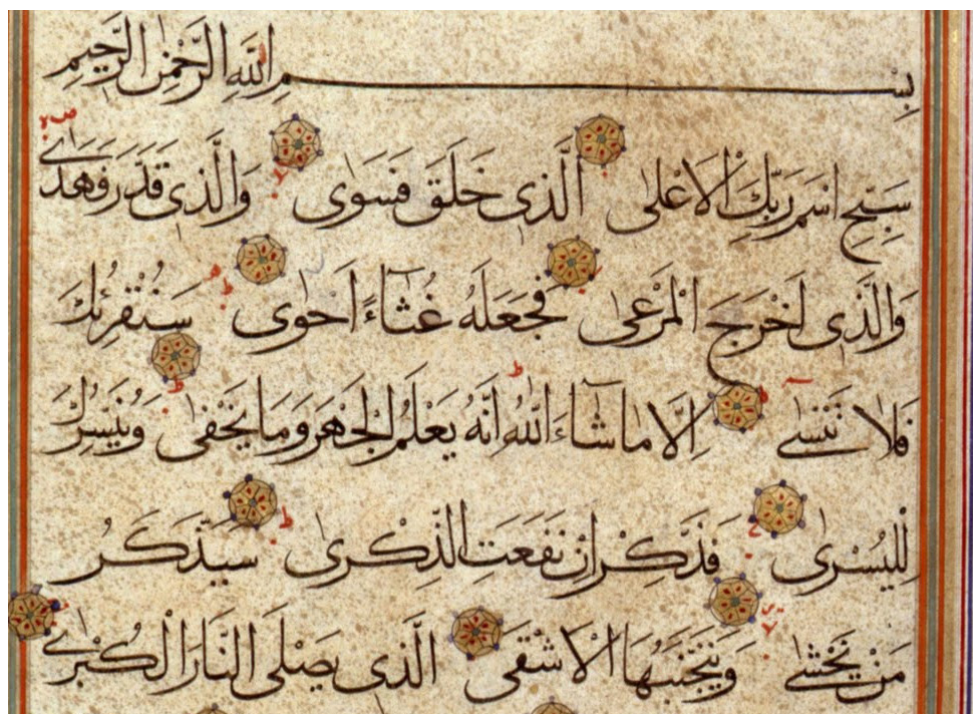 بِسْمِ اللَّهِ الرَّحْمٰنِ الرَّحِيمِ
سَبِّحِ اسْمَ رَبِّكَ الْاَعْلٰى الَّذِى خَلَقَ فَسَوّٰى وَالَّذِى قَدَّرَ فَهَدٰى
وَالَّذِى اَخْرَجَ الْمَرْعٰى فَجَعَلَهُ غُثَآءً اَحْوٰى سَنُقْرِئُكَ
فَلَا تَنْسٰى اِلَّا مَا شَآءَ اللَّهُ اِنَّهُ يَعْلَمُ الْجَهْرَ وَمَا يَخْفٰى وَنُيَسِّرُكَ
لِلْيُسْرٰى فَذَكِّرْ اِنْ نَفَعَتِ الذِّكْرٰى سَيَذَّكَّرُ
مَنْ يَخْشٰى وَيَتَجَنَّبُهَا الْاَشْقَى الَّذِى يَصْلَى النَّارَ الْكُبْرٰى